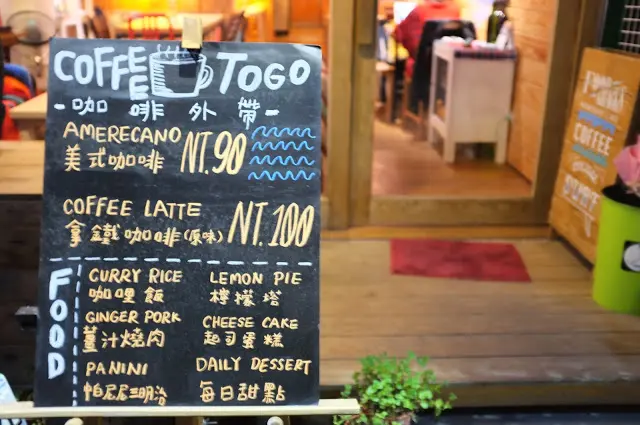 COFFEE TOGO
-咖啡外帶-
AMERECANO NT.90
美式咖啡
COFFEE LATTE NT.100
拿鐵咖啡(原味)
FOOD
CURRY RICE
咖哩飯
GINGER PORK
薑汁燒肉
PANINI
帕尼尼三明治
LEMON PIE
檸檬塔
CHEESE CAKE
起司蛋糕
DAILY DESSERT
每日甜點
COFFEE